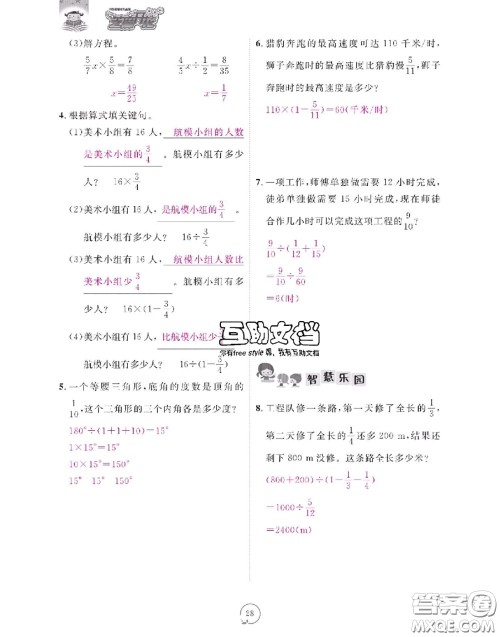 (3)解方程。
5/7 x = 5/8 × 4/5
4/5 x ÷ 1/2 = 8/35
x = 49/25
x = 1/7
4. 根据算式填关键句。
(1)美术小组有 16 人，航模小组的人数
是美术小组的 3/4。航模小组有多少
人？ 16×3/4
(2)美术小组有 16 人，是航模小组的 3/4。
航模小组有多少人？ 16÷3/4
(3)美术小组有 16 人，航模小组人数比
美术小组少 3/4。航模小组有多
少人？ 16×(1−3/4)
(4)美术小组有 16 人，比航模小组少
航模小组有多少人？ 16÷(1−3/4)
5. 一个等腰三角形，底角的度数是顶角的
1/10，这个三角形的三个内角各是多少度？
180°÷(1+1+10)=15°
1×15°=15°
10×15°=150°
15° 15° 150°
6. 猎豹奔跑的最高速度可达 110 千米/时，
狮子奔跑时的最高速度比猎豹慢 5/11，狮子
奔跑时的最高速度是多少？
110×(1−5/11)=60(千米/时)
7. 一项工作，师傅单独做需要 12 小时完成，
徒弟单独做需要 15 小时完成。现在师徒
合作几小时可以完成这项工程的 9/10？
9/10÷(1/12+1/15)
=9/10÷9/60
=6(时)
互助文档
你有free style 嘿，我有互助文档
智慧乐园
8. 工程队修一条路，第一天修了全长的 1/3，
第二天修了全长的 1/4 还多 200 m，结果还
剩下 800 m 没修。这条路全长多少米？
(800+200)÷(1−1/3−1/4)
=1000÷5/12
=2400(m)
28
答案圈
MXQE.COM